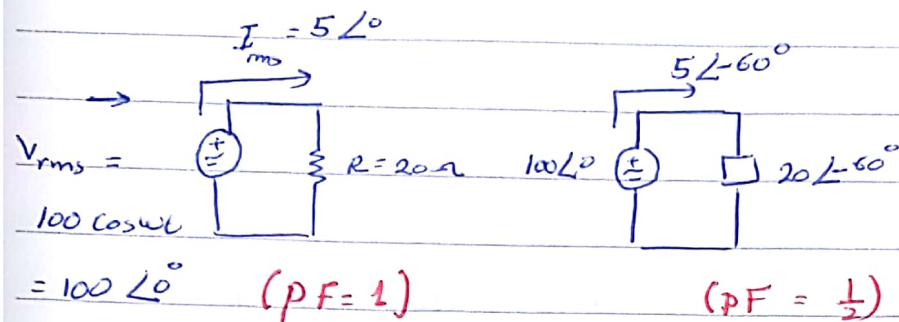 I rms = 5∠0
5∠-60°
Vrms =
R = 20Ω
100∠0
20∠-60°
100 cosωt
= 100∠0°
(PF = 1)
(PF = 1/2)